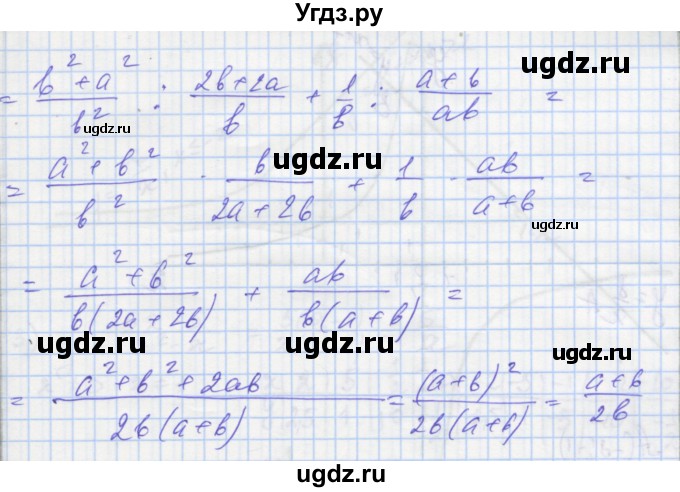 Угдз.ру
= (b² + a²)/b² : (2b + 2a)/b + 1/b : (a + b)/(ab) =
ugdz.ru ugdz.ru ugdz.ru
= (a² + b²)/b² · b/(2a + 2b) + 1/b · ab/(a + b) =
ugdz.ru ugdz.ru
= (a² + b²)/(b(2a + 2b)) + ab/(b(a + b)) =
ugdz.ru ugdz.ru ugdz.ru
= (a² + b² + 2ab)/(2b(a + b)) = (a + b)²/(2b(a + b)) = (a + b)/(2b)
ugdz.ru